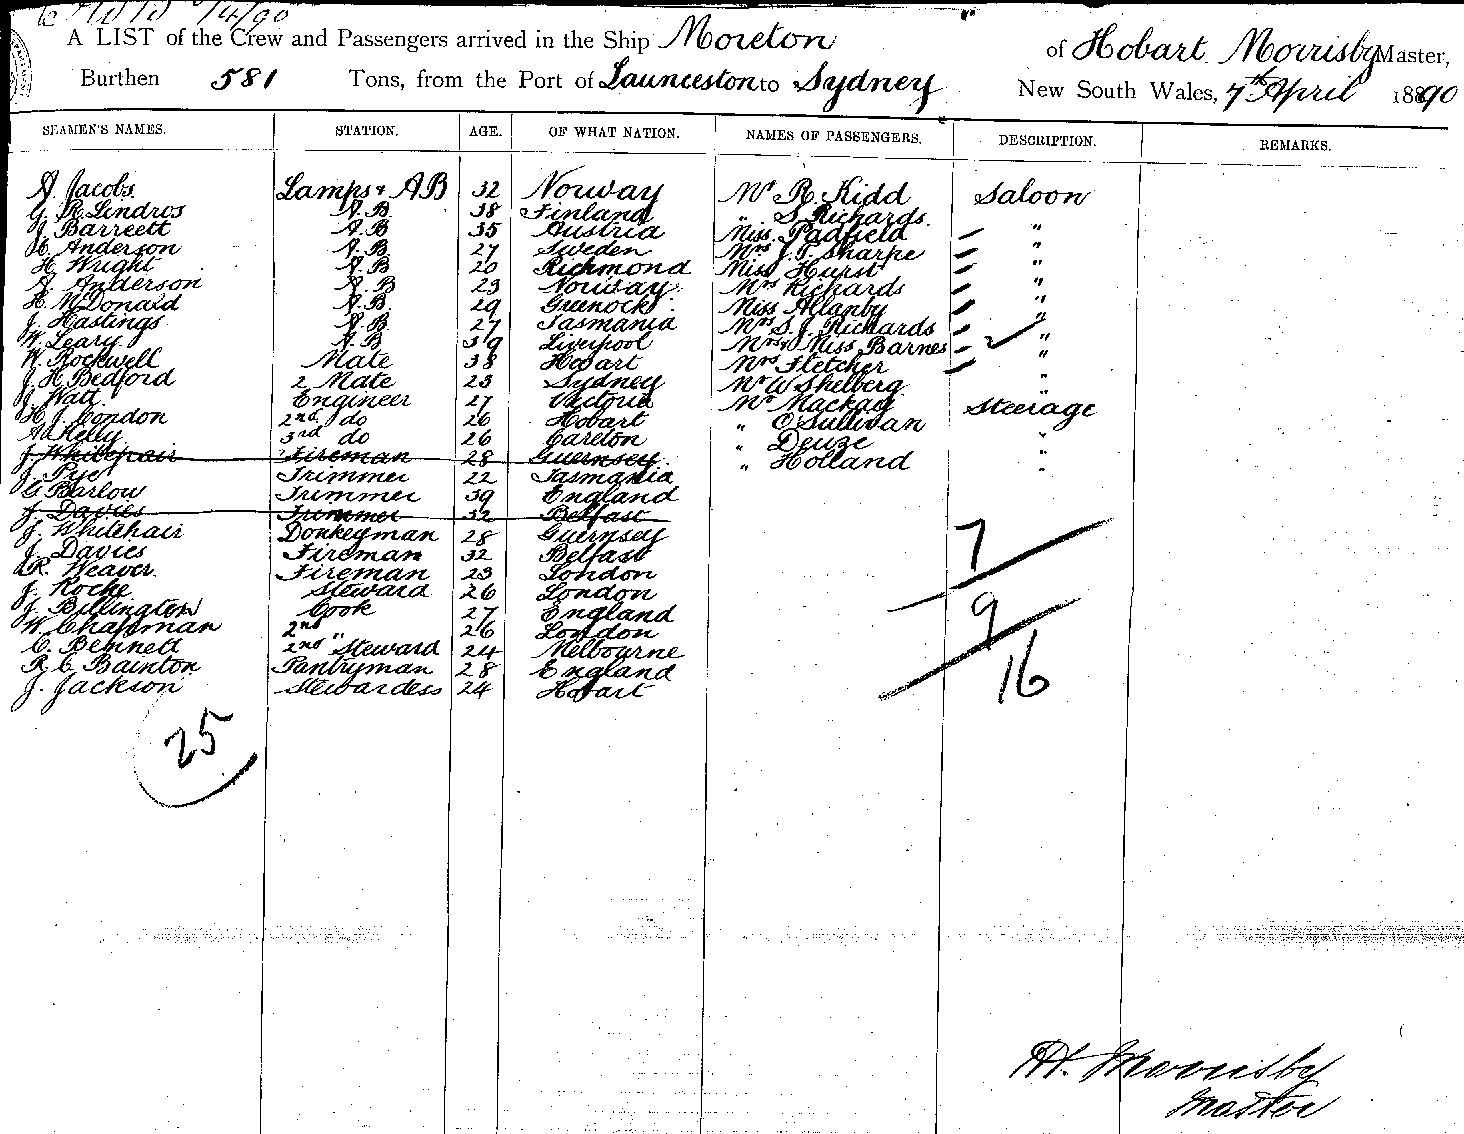 A LIST of the Crew and Passengers arrived in the Ship Moreton of Hobart Morrisby Master,
Burthen 581 Tons, from the Port of Launceston to Sydney New South Wales, 7th April 1890
SEAMEN'S NAMES. STATION. AGE. OF WHAT NATION. NAMES OF PASSENGERS. DESCRIPTION. REMARKS.
A. Jacobs. Lamps & AB 32 Norway Mr R. Kidd Saloon
G. R. Lindros A.B 38 Finland " S. Richards. "
J. Barrett A.B 35 Austria Miss. Padfield "
C. Anderson A.B 27 Sweden Mrs J. T. Sharpe "
H. Wright A.B 20 Richmond Miss Hurst "
A. Anderson A.B 23 Norway. Mrs Richards "
H. McDonald A.B 29 Greenock Miss Allanby "
J. Hastings A.B 27 Tasmania Mrs S. J. Richards "
W. Leary A.B 39 Liverpool Mrs & Miss Barnes 2 "
W. Rockwell Mate 38 Hobart Mrs Fletcher "
J. H. Bedford 2 Mate 23 Sydney Mr W Shelberg "
J. Watt. Engineer 27 Victoria Mr Mackay Steerage
H. J. Condon 2nd do 26 Hobart " O'Sullivan "
A. Kelly 3rd do 26 Carlton " Deuze "
J. Whitehair Fireman 28 Guernsey " Holland "
J. Pye Trimmer 22 Tasmania
G. Barlow Trimmer 39 England
J. Davies Trimmer 32 Belfast
J. Whitehair Donkeyman 28 Guernsey
J. Davies Fireman 32 Belfast
R. Weaver. Fireman 23 London
J. Roche Steward 26 London
J. Billington Cook 27 England
W. Chapman 2nd " 26 London
C. Bennett 2nd Steward 24 Melbourne
R. C. Bainton Pantryman 28 England
J. Jackson Stewardess 24 Hobart
7
9
16
25
H. Morrisby
Master